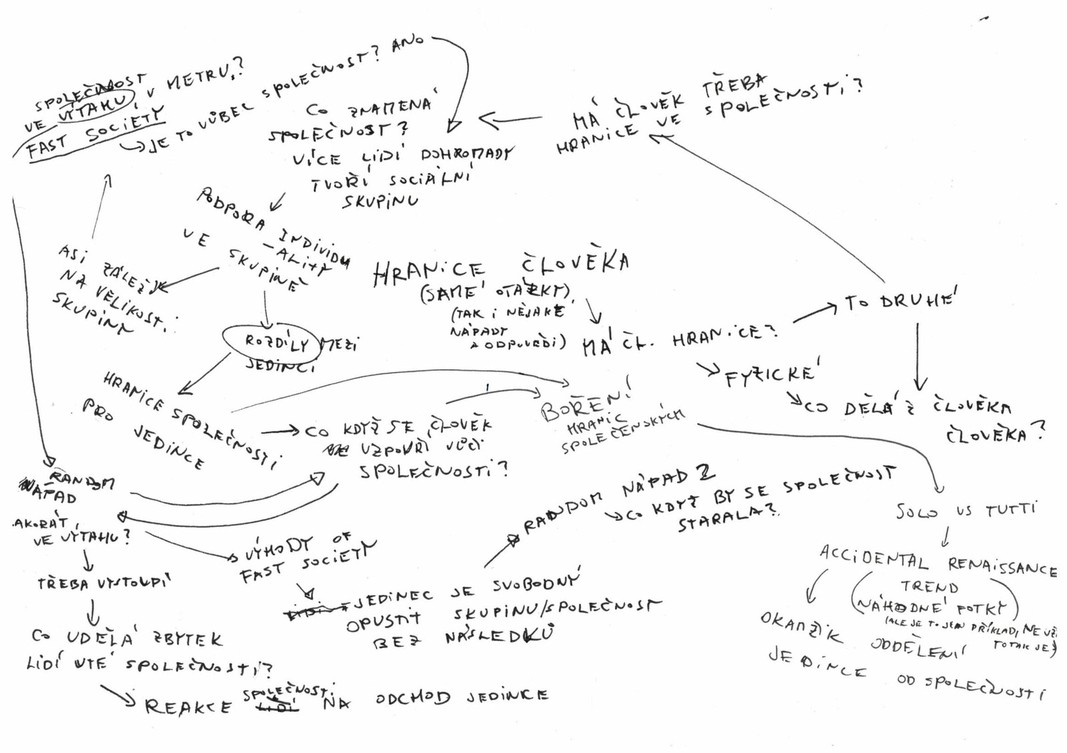 SPOLEČNOST
VE VÝTAHU V METRU?
FAST SOCIETY
JE TO VŮBEC SPOLEČNOST? ANO
CO ZNAMENÁ
SPOLEČNOST?
VÍCE LIDÍ DOHROMADY
TVOŘÍ SOCIÁLNÍ
SKUPINU
MÁ ČLOVĚK TŘEBA
HRANICE VE SPOLEČNOSTI?
PODPORA INDIVIDU
-ALITY
VE SKUPINĚ
ASI ZÁLEŽÍ
NA VELIKOSTI
SKUPINY
HRANICE ČLOVĚKA
(SAMÉ OTÁZKY)
(TAK I NĚJAKÉ
NÁPADY
A ODPOVĚDI)
MÁ ČL. HRANICE?
TO DRUHÉ
FYZICKÉ
CO DĚLÁ Z ČLOVĚKA
ČLOVĚKA?
ROZDÍLY MEZI
JEDINCI
HRANICE SPOLEČNOSTI
PRO JEDINCE
CO KDYŽ SE ČLOVĚK
VZPOVŘÍ VŮČI
SPOLEČNOSTI?
BOŘENÍ
HRANIC
SPOLEČENSKÝCH
RANDOM
NÁPAD
AKORÁT
VE VÝTAHU?
TŘEBA VYSTOUPÍ
CO UDĚLÁ ZBYTEK
LIDÍ V TÉ SPOLEČNOSTI?
REAKCE SPOLEČNOSTI NA ODCHOD JEDINCE
VÝHODY OF
FAST SOCIETY
JEDINEC JE SVOBODNÝ
OPUSTIT SKUPINU/SPOLEČNOST
BEZ NÁSLEDKŮ
RANDOM NÁPAD 2
CO KDYŽ BY SE SPOLEČNOST
STARALA?
SOLO VS TUTTI
ACCIDENTAL RENAISSANCE
TREND
(NÁHODNÉ FOTKY)
(ALE JE TO JEN PŘÍKLAD,
TO TAK JE)
OKAMŽIK ODDĚLENÍ
JEDINCE OD SPOLEČNOSTI